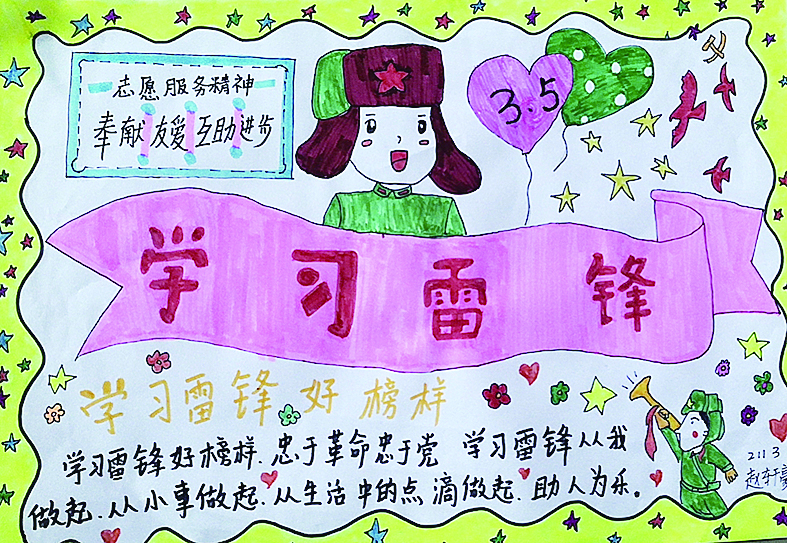 志愿服务精神
奉献 友爱 互助 进步
3.5
学习雷锋
学习雷锋好榜样
学习雷锋好榜样.忠于革命忠于党 学习雷锋从我
做起.从小事做起.从生活中的点滴做起.助人为乐。
2113
赵轩